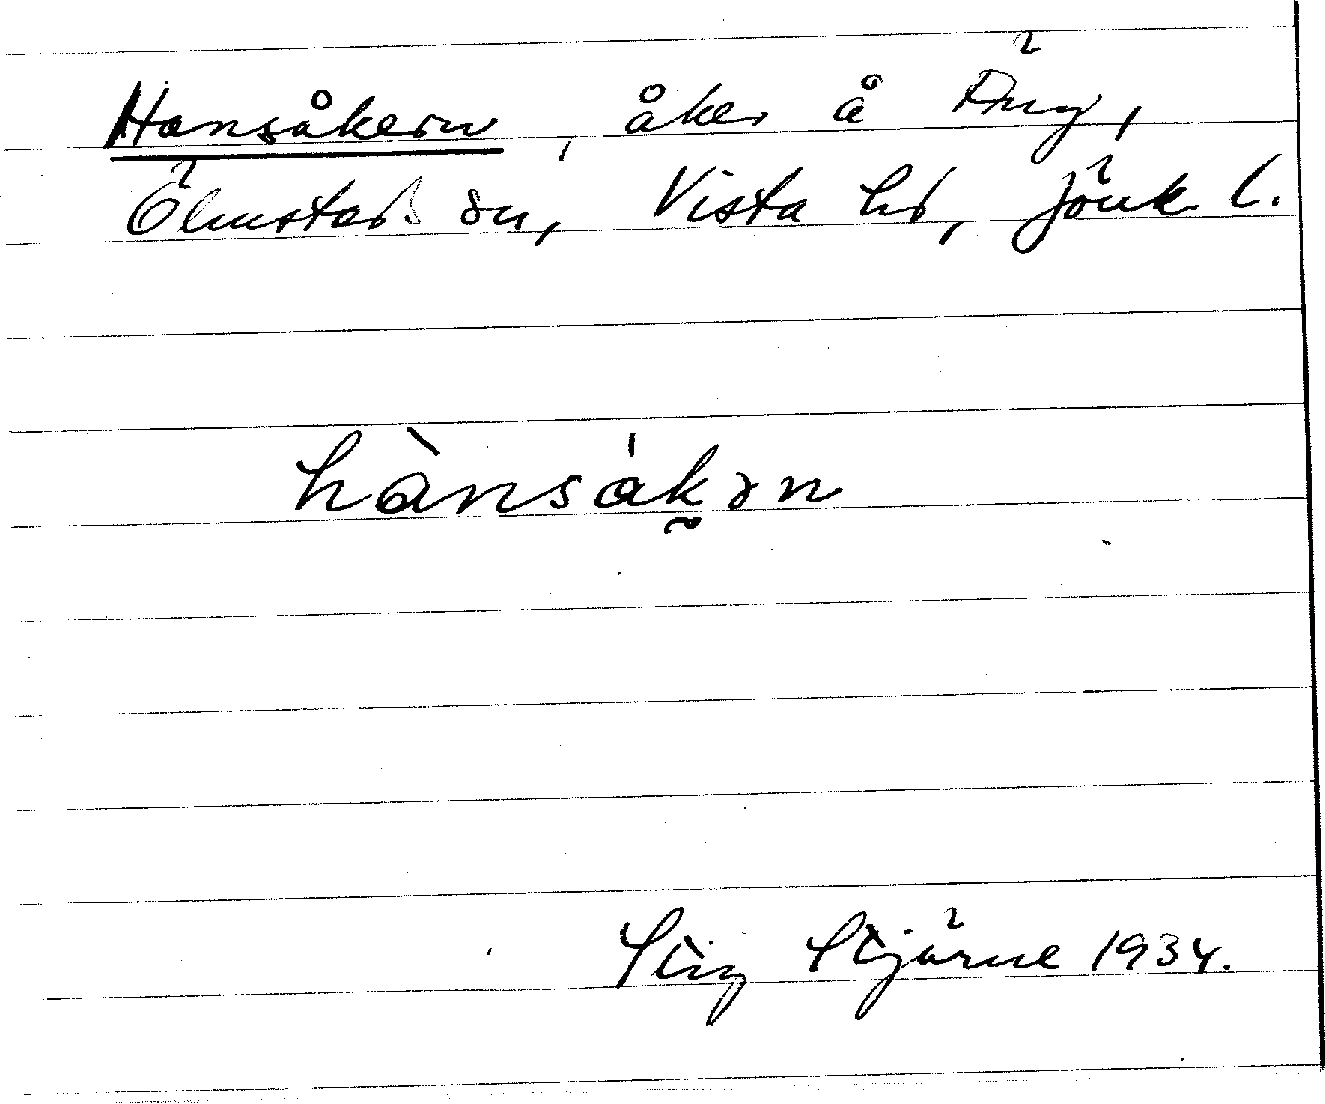 Hansåkern, åker å Äng,
Ölmstads sn, Vista hd, Jönk. l.
hànsákən
Stig Stjärne 1934.